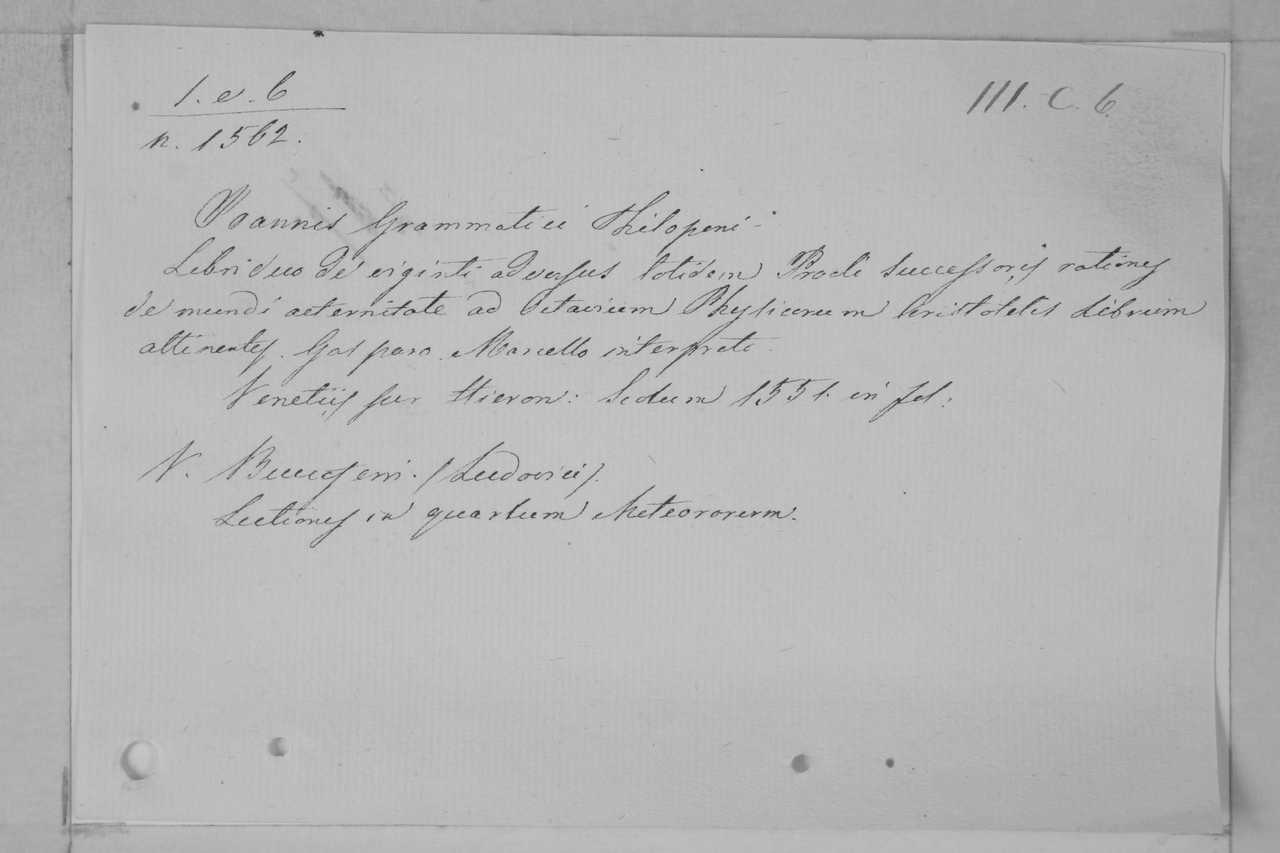 1. e. 6
n. 1562.
III. C. 6
Joannis Grammatici Philoponi
Libri duo de viginti adversus totidem Procli successoris rationes
de mundi aeternitate ad Octavum Physicorum Aristotelis Librum
attinentes. Gasparo Marcello interprete.
Venetiis per Hieron: Scotum 1551. in fol:
V. Buccaferri. (Ludovici).
Lectiones in quartum Meteororum.